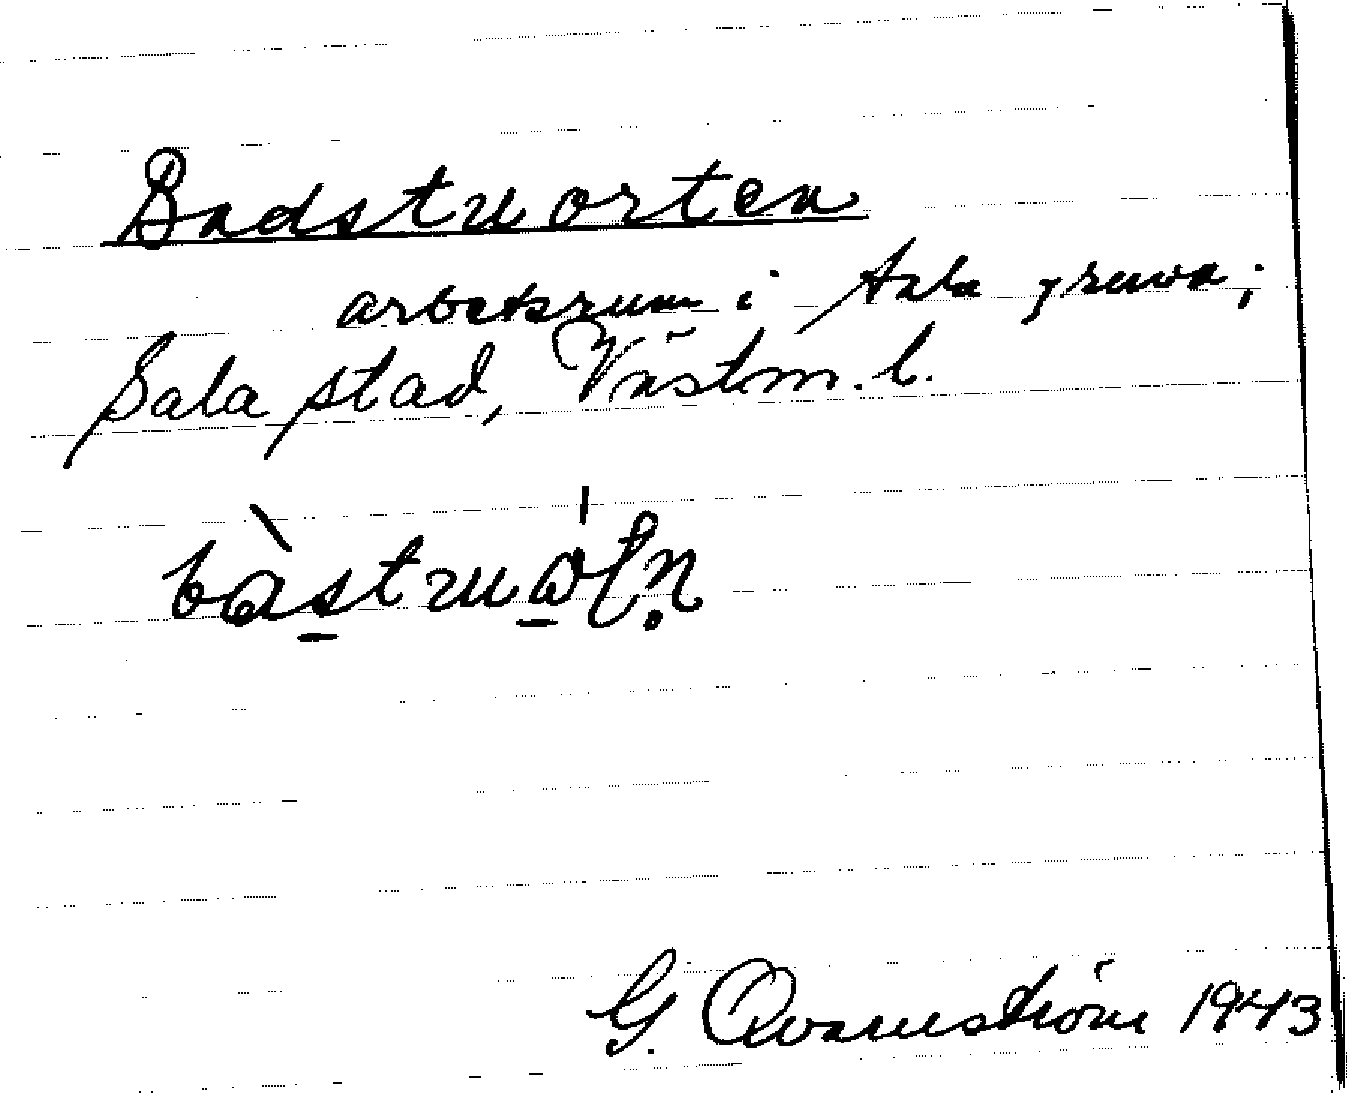 Badstuorten
arbetsrum i Sala gruva;
Sala stad, Västm. l.
G. Qvarnström 1943